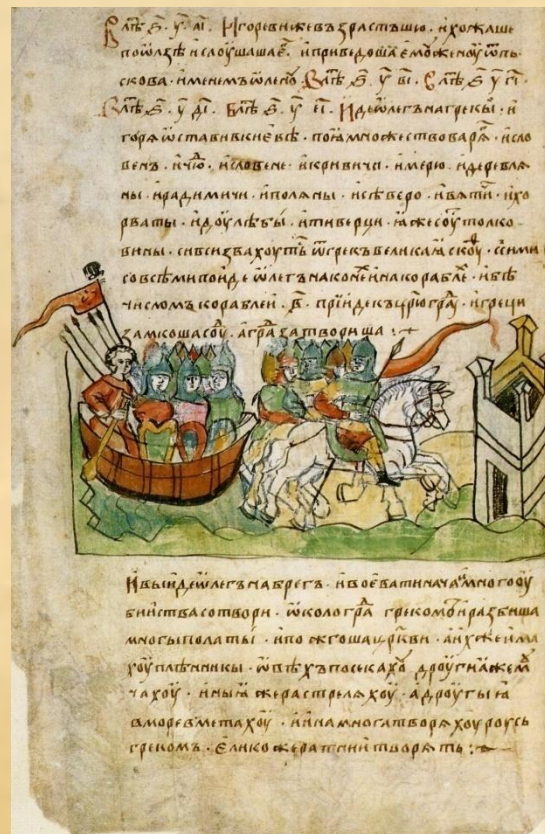 В лѣⷮ ҂s҃ у҃ аı҃ · Игореви же възрастъшю · и хожаше
по ѡлзѣ и слоушаше є҆го · и приведоша ємоу женоу ѿ пь
скова · именемъ ѡлену · В лѣⷮ ҂s҃ у҃ вı҃ · В лѣⷮ ҂s҃ у҃ гı҃ ·
В лѣⷮ ҂s҃ у҃ дı҃ · В лѣⷮ ҂s҃ у҃ еı҃ · Иде ѡлегъ на грекы · и
горѧ ѡстави в киевѣ · поꙗ множество варѧⷢ · и сло
венъ · и чюⷣ · и словене · и кривичи · и мерю · и деревлѧ
ны · и радимичи · и полѧны · и сѣверо · и вѧтичи · и хо
рваты · и доулѣбы · и тиверци · ꙗже соуⷮ толко
вины · си вси звахоутьⷭ ѿ грекъ великаꙗ скоуⷴ · с сими
со всѣми поиде ѡлегъ на конеⷯ и на кораблеⷯ · и бѣ
числомъ кораблеи · в҃ · прииде къ црⷭ҇ю граⷣ · и греци
замкоша соуⷣ · а граⷣ затвориша :·
И выиде ѡлегъ на брегъ · и воевати нача · и много оу
биства сотвори · ѡколо граⷣ грекомъ · и разбиша
многы полаты · и пожгоша цр҃кви · а ихже има
хоу плѣнникы · ѡвѣхъ посекахоу · дроугиꙗ же мⷱ
чахоу · иныꙗ же растрелѧхоу · а дроугыꙗ
в море вметахоу · и ина многа творѧхоу роусь
грекомъ · єлико же ратнии творѧть :·